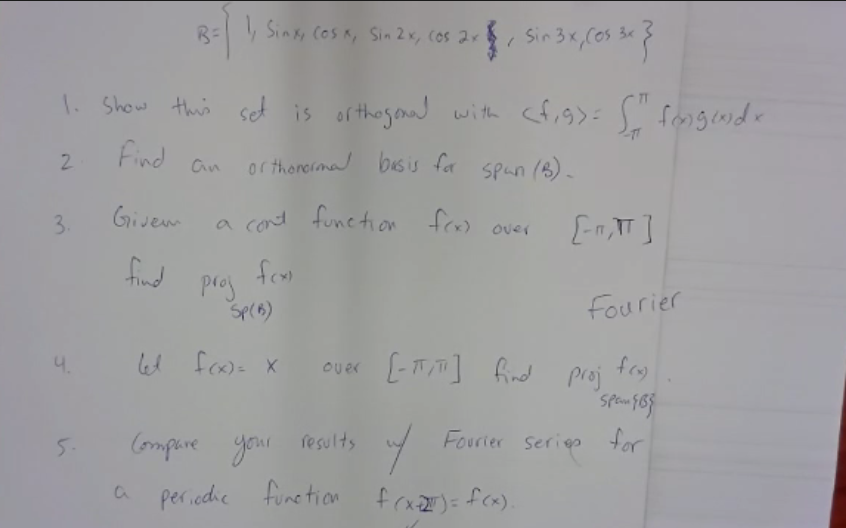 B = { 1, Sin x, Cos x, Sin 2x, Cos 2x, Sin 3x, Cos 3x }
1. Show this set is orthogonal with <f,g> = ∫_{-π}^{π} f(x)g(x)dx
2. Find an orthonormal basis for span (B).
3. Given a cont function f(x) over [-π,π]
find proj_{Sp(B)} f(x)
Fourier
4. Let f(x) = x over [-π,π] find proj_{Span{B}} f(x).
5. Compare your results w/ Fourier series for
a periodic function f(x+2π) = f(x).